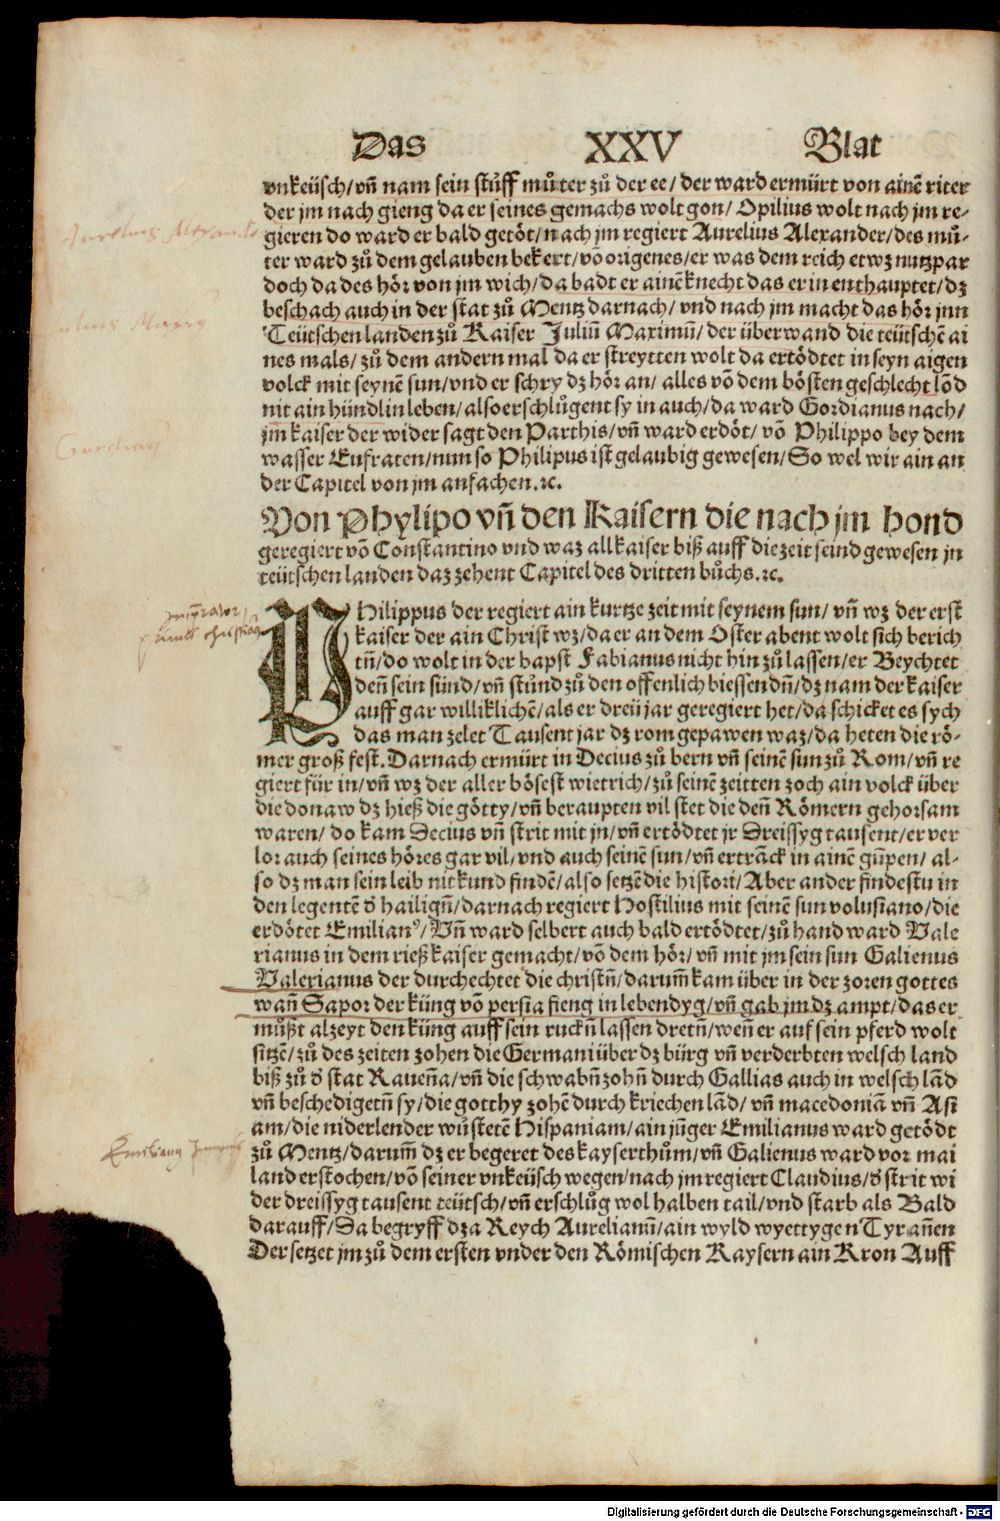 Das XXV Blat
vnkeüsch/vñ nam sein stüff můter zů der ee/der ward ermürt von ainē riter
der jm nach gieng da er seines gemachs wolt gon/Opilius wolt nach jm re-
gieren do ward er bald getöt/nach jm regiert Aurelius Alexander/des mů-
ter ward zů dem gelauben bekert/võ origenes/er was dem reich etwz nutzpar
doch da des hör von jm wich/da badt er ainē knecht das er in enthauptet/dz
beschach auch in der stat zů Mentz darnach/vnd nach jm macht das hör jnn
Teütschen landen zů Kaiser Juliū Maximū/der überwand die teütschē ai
nes mals/zů dem andern mal da er streytten wolt da ertödtet in seyn aigen
volck mit seynē sun/vnd er schry dz hör an/alles võ dem bösten geschlecht lõd
nit ain hündlin leben/also erschlůgent sy in auch/da ward Gordianus nach/
jm kaiser der wider sagt den Parthis/vñ ward erdöt/võ Philippo bey dem
wasser Eufraten/nun so Philipus ist gelaubig gewesen/So wel wir ain an
der Capitel von jm anfachen.ꝛc.
Von Phylipo vñ den Kaisern die nach jm hond
geregiert võ Constantino vnd waz all kaiser biß auff die zeit seind gewesen jn
teütschen landen daz zehent Capitel des dritten bůchs.ꝛc.
PHilippus der regiert ain kurtze zeit mit seynem sun/vñ wz der erst
kaiser der ain Christ wz/da er an dem Oster abent wolt sich berich
tñ/do wolt in der bapst Fabianus nicht hin zů lassen/er Beychtet
deñ sein sünd/vñ stünd zů den offenlich biessendñ/dz nam der kaiser
auff gar williklichē/als er dreü jar geregiert het/da schicket es sych
das man zelet Tausent jar dz rom gepawen waz/da heten die rö-
mer groß fest. Darnach ermürt in Decius zů bern vñ seinē sun zů Rom/vñ re
giert für in/vñ wz der aller bösest wietrich/zů seinē zeitten zoch ain volck über
die donaw dz hieß die götty/vñ beraupten vil stet die deñ Römern gehorsam
waren/do kam Decius vñ strit mit jn/vñ ertödtet jr Dreissyg tausent/er ver
lor auch seines höres gar vil/vnd auch seinē sun/vñ ertrãck in ainē gũpen/al-
so dz man sein leib nit kund findē/also setzē die histori/Aber ander findestu in
den legentē đ hailigñ/darnach regiert Hostilius mit seinē sun volusiano/die
erdötet Emilianꝰ/Vñ ward selbert auch bald ertödtet/zů hand ward Vale
rianus in dem rieß kaiser gemacht/võ dem hör/vñ mit jm sein sun Galienus
Valerianus der durchechtet die christñ/darum̃ kam über in der zoren gottes
wañ Sapor der küng võ persia fieng in lebendyg/vñ gab jm dz ampt/das er
můßt alzeyt den küng auff sein ruckñ lassen dretñ/weñ er auf sein pferd wolt
sitzē/zů des zeiten zohen die Germani über dz bürg vñ verderbten welsch land
biß zů đ stat Raueña/vñ die schwabñ zohñ durch Gallias auch in welsch lãd
vñ beschedigetñ sy/die gotthy zohē durch kriechen lãd/vñ macedoniã vñ Asi
am/die niderlender wůstetē Hispaniam/ain jũger Emilianus ward getödt
zů Mentz/darum̃ dz er begeret des kayserthům/vñ Galienus ward vor mai
land erstochen/võ seiner vnkeüsch wegen/nach jm regiert Claudius/đ strit wi
der dreissyg tausent teütsch/vñ erschlůg wol halben tail/vnd starb als Bald
darauff/Da begryff dza Reych Aurelianū/ain wyld wyettygen Tyrañen
Der setzet jm zů dem ersten vnder den Römischen Kaysern ain Kron Auff
Aurelius Alexand
Julius Maxim
Gordian
Digitalisierung gefördert durch die Deutsche Forschungsgemeinschaft - DFG